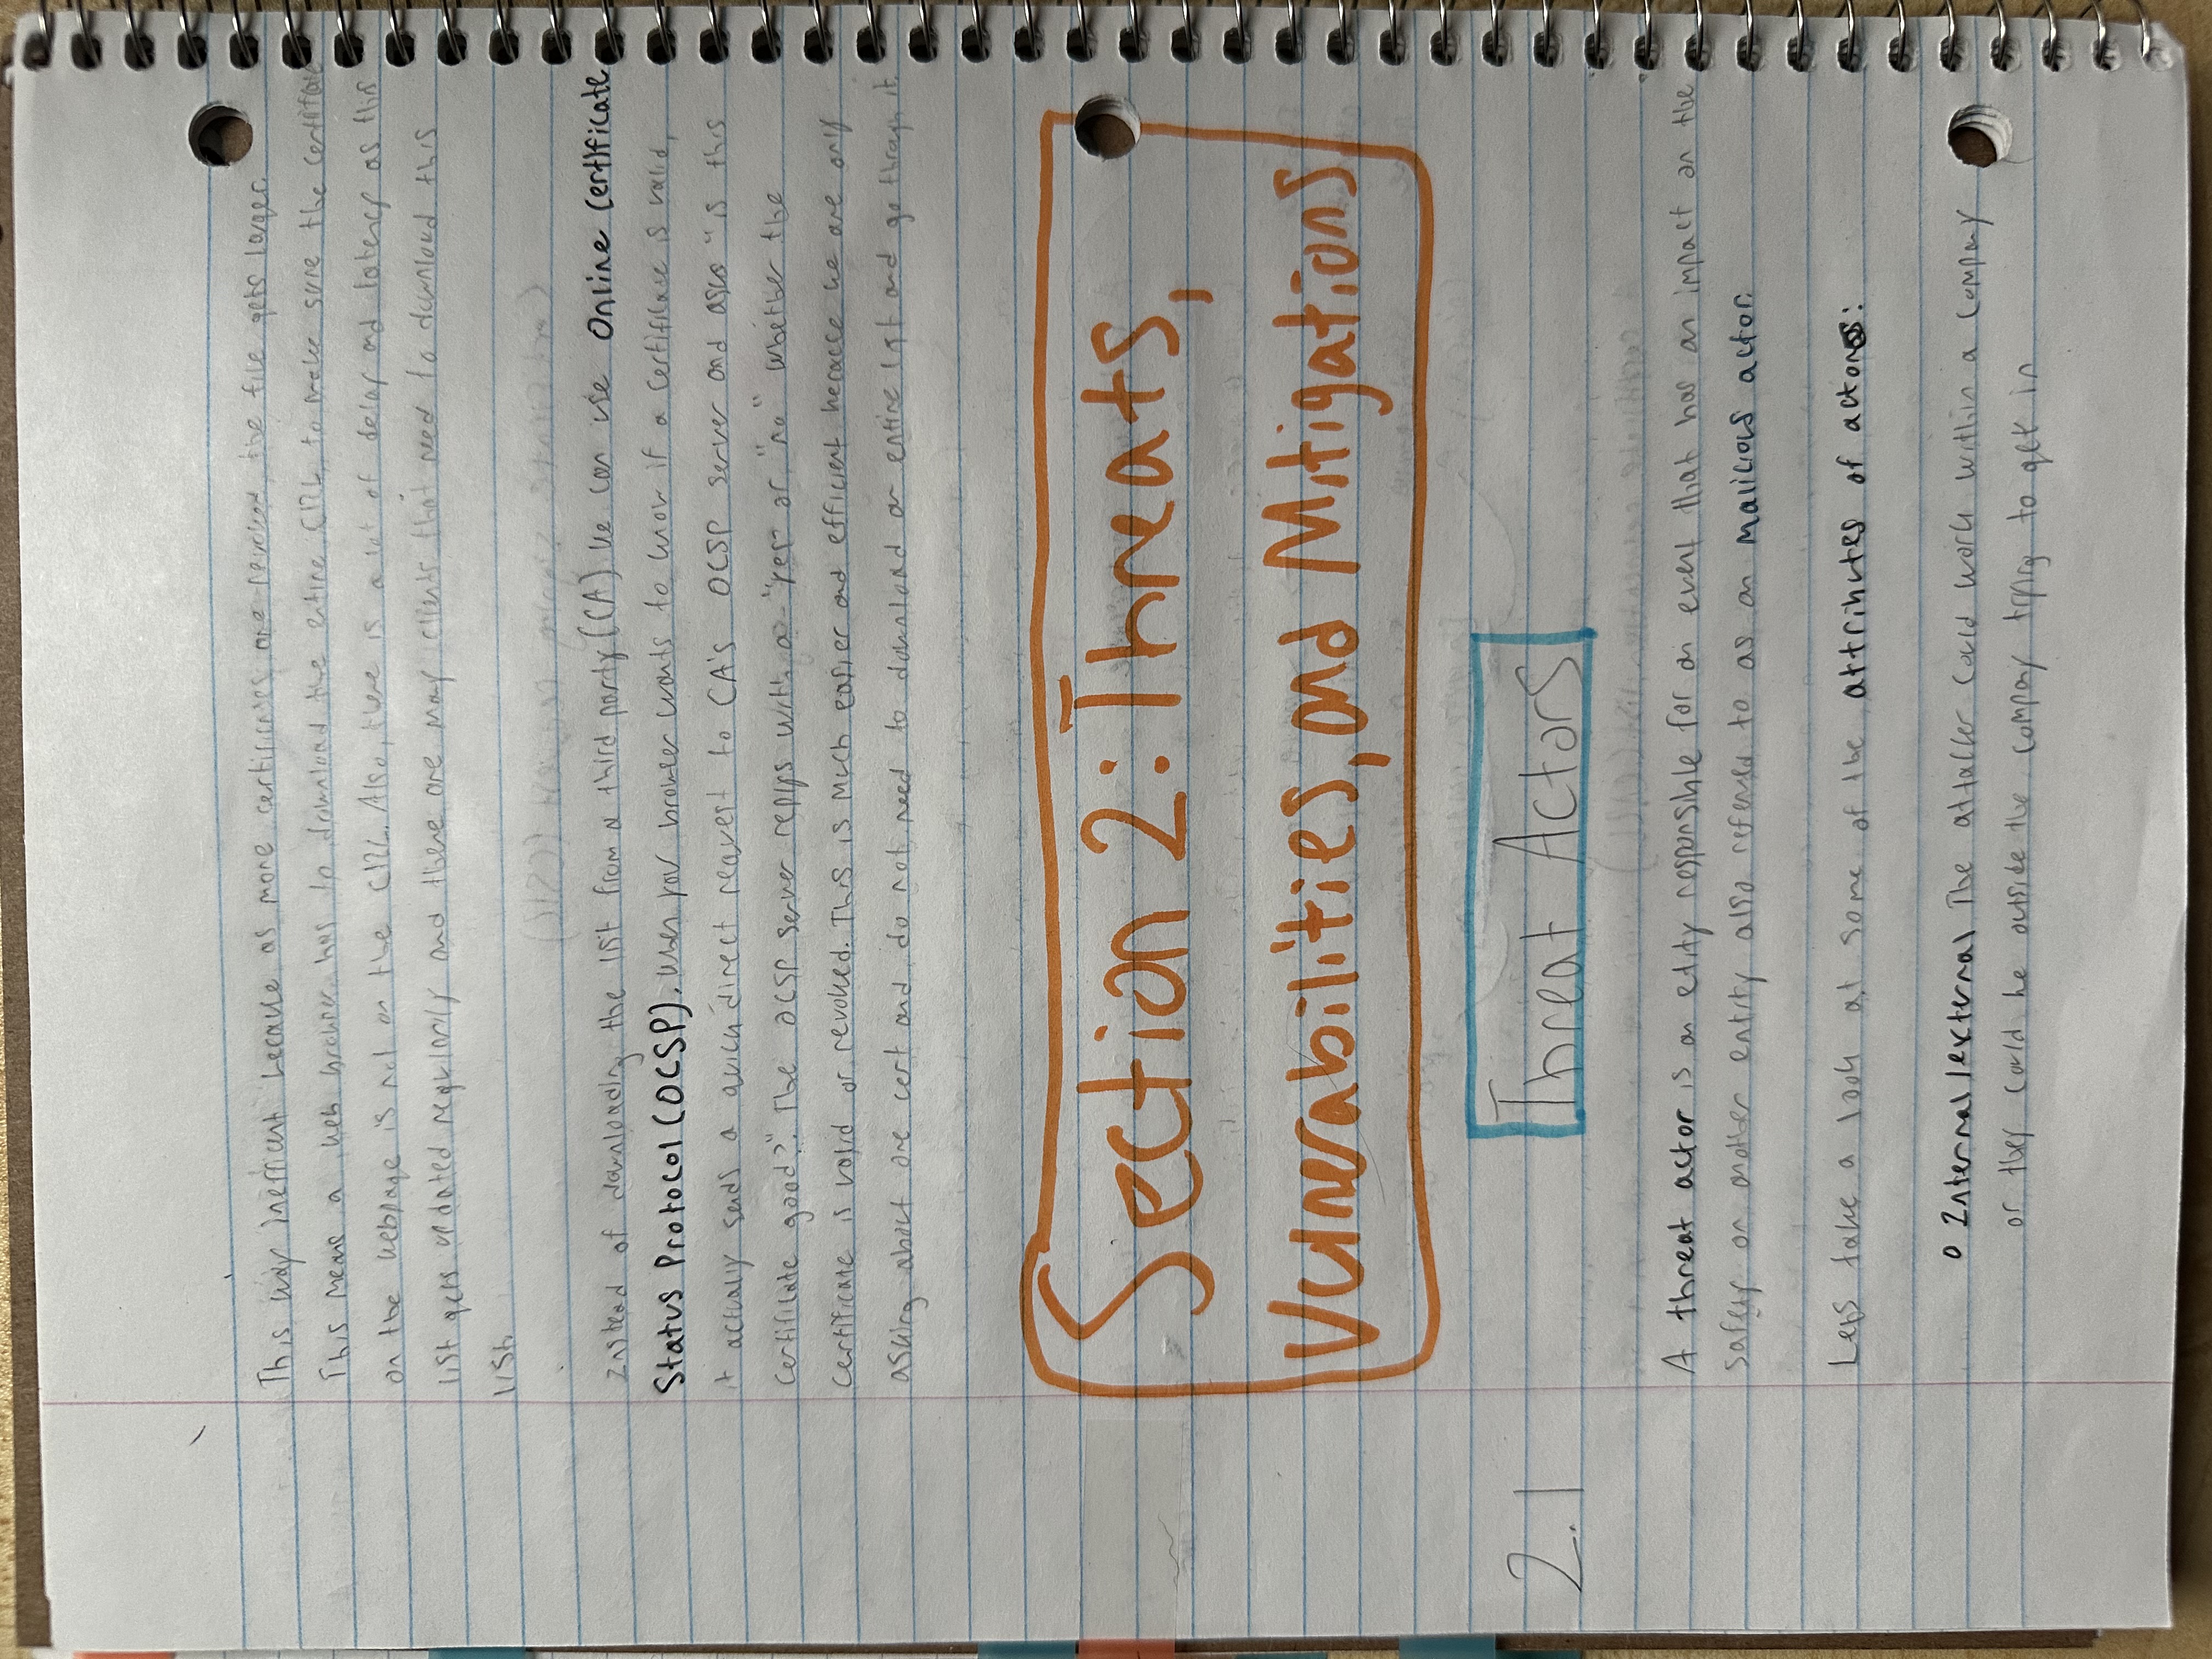 This way inefficient because as more certificates are revoked, the file gets larger.
This means a web browser has to download the entire CRL to make sure the certificate
on the webpage is not on the CRL. Also, there is a lot of delay and latency as this
list gets updated regularly and there are may clients that need to download this
list.
Certificate signing request (CSR)
Instead of downloading the list from a third party (CA) we can use Online Certificate
Status Protocol (OCSP). When your browser wants to know if a certificate is valid,
it actually sends a quick direct request to CA's OCSP server and asks "is this
certificate good?". The OCSP server replys with a "yes" or "no" whether the
certificate is valid or revoked. This is much easier and efficient because we are only
asking about one cert and do not need to download an entire list and go through it.
Section 2: Threats,
Vulnerabilities, and Mitigations
2.1 Threat Actors
A certificate revocation list (CRL)
A threat actor is an etity responsible for an event that has an impact on the
safety on another entity also referred to as an malicious actor.
Lets take a look at some of the attributes of actors:
o Internal/external The attacker could work within a company
or they could be outside the company trying to get in